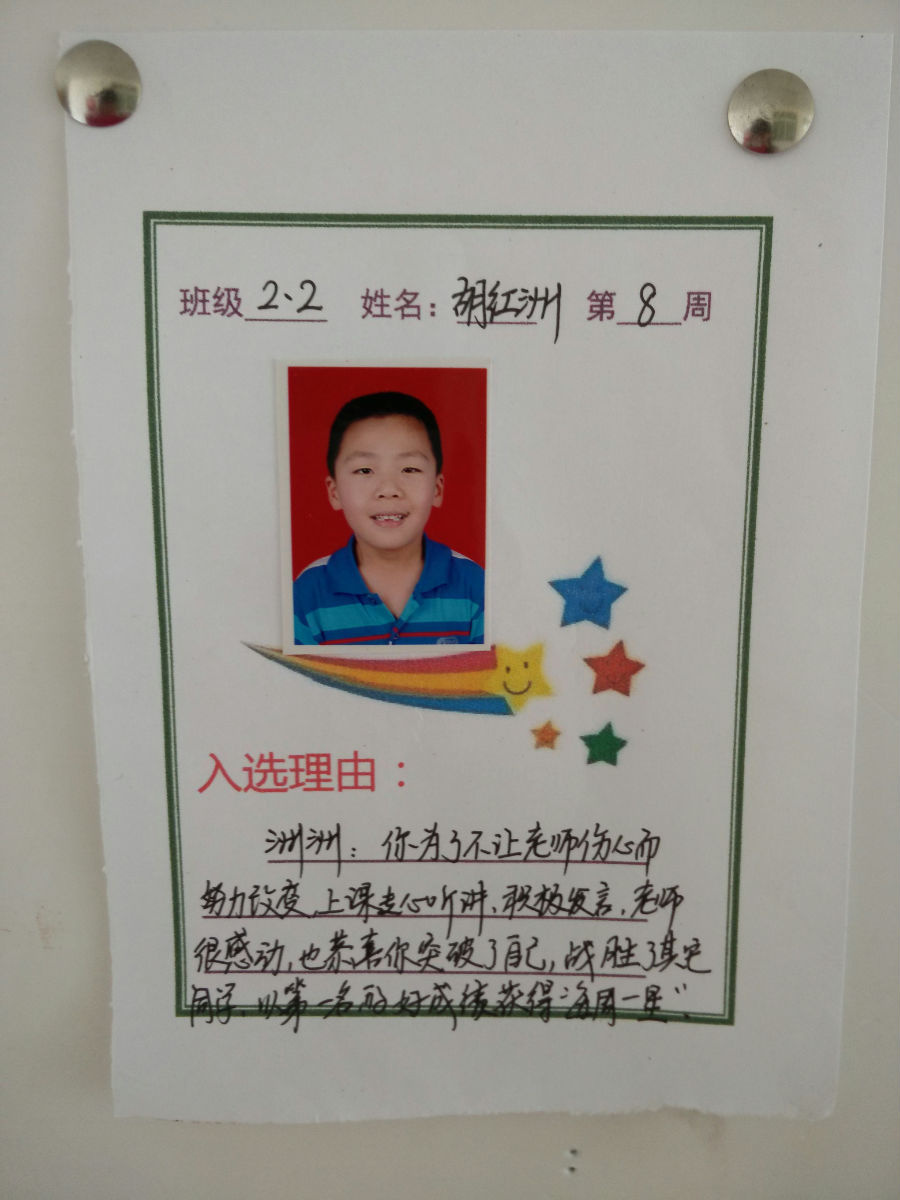 班级 2.2 姓名：胡红洲 第 8 周
入选理由：
洲洲：你为了不让老师伤心而
努力改变，上课走心听讲、积极发言，老师
很感动，也恭喜你突破了自己，战胜了其它
同学，以第一名的好成绩获得“每周一星”、